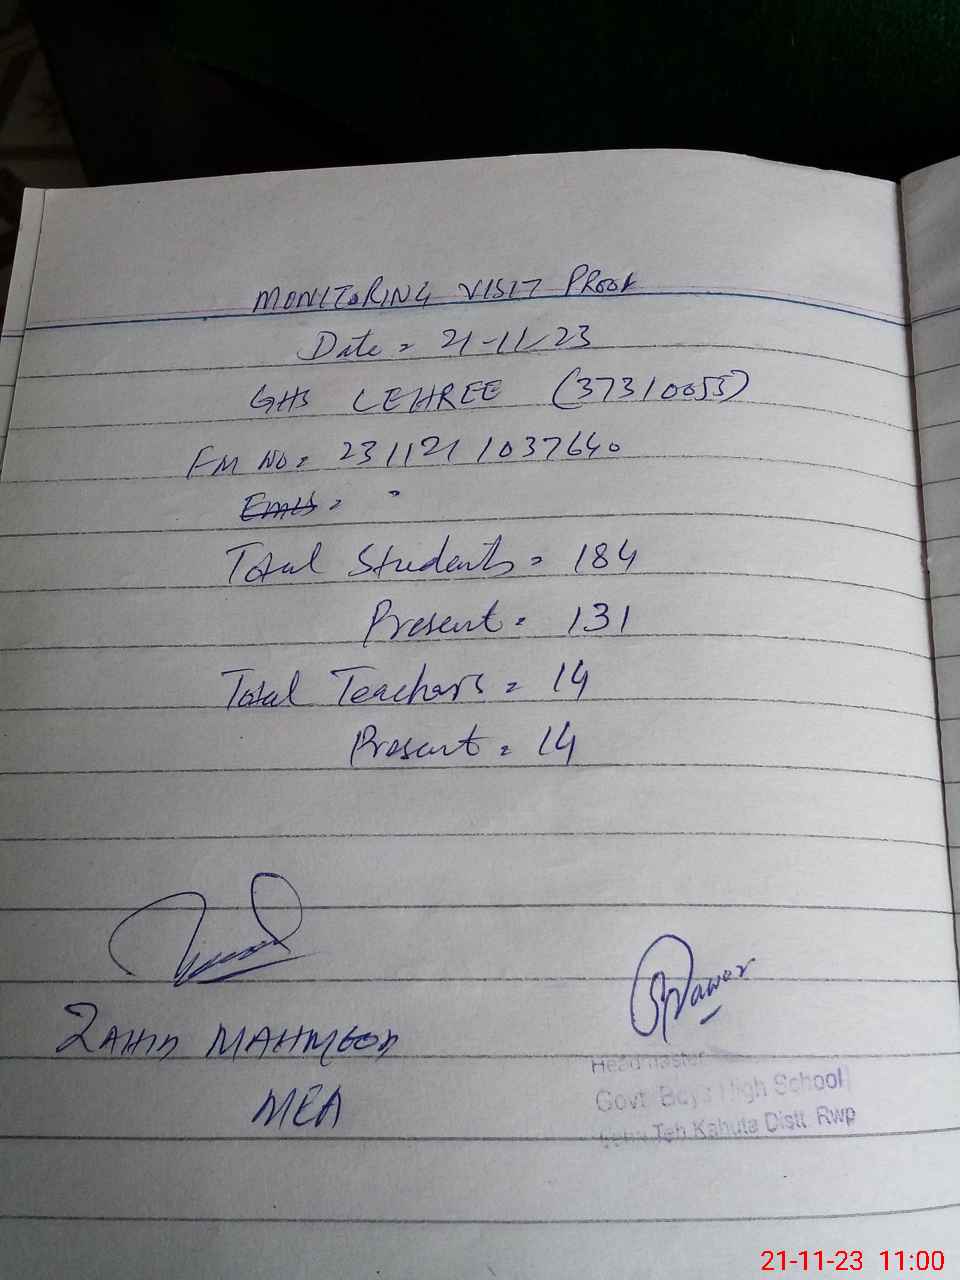 MONITORING VISIT PROOF
Date = 21-11-23
GHS LEHREE (37310055)
FM NO = 231121 1037640
Emis =
Total Students = 184
Present = 131
Total Teachers = 14
Present = 14
ZAHID MAHMOOD
MEA
Headmaster
Govt Boys High School
Teh Kahuta Distt Rwp
21-11-23 11:00